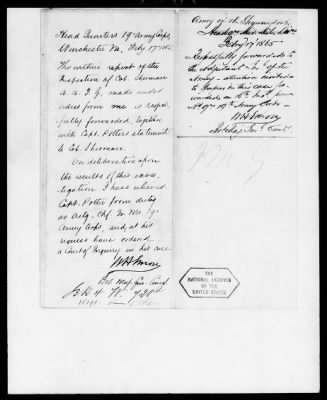 Head Quarters 19th Army Corps,
Winchester Va, Feby 17th 1865
The within report of the
Inspection of Col. Sherman
A. A. I. G. made under
orders from me is respect-
fully forwarded, together
with Capt. Potter's statement
to Col. Sherman.
On deliberation upon
the results of this inves-
tigation I have relieved
Capt. Potter from duty
as Actg. Chf. Qr. Mr. 19"
Army Corps, and, at his
request have ordered
a Court of Inquiry in his case
W H Emory
Bvt. Maj Gen Comdg
Army of the Shenandoah
Feby 17 1865
Respectfully forwarded to
the Adjutant Gen of the
Army - attention invited
to papers in this case for-
warded on 16th inst from
Hd Qrs 19th Army Corps -
W H Emory
THE
NATIONAL ARCHIVES
OF THE
UNITED STATES